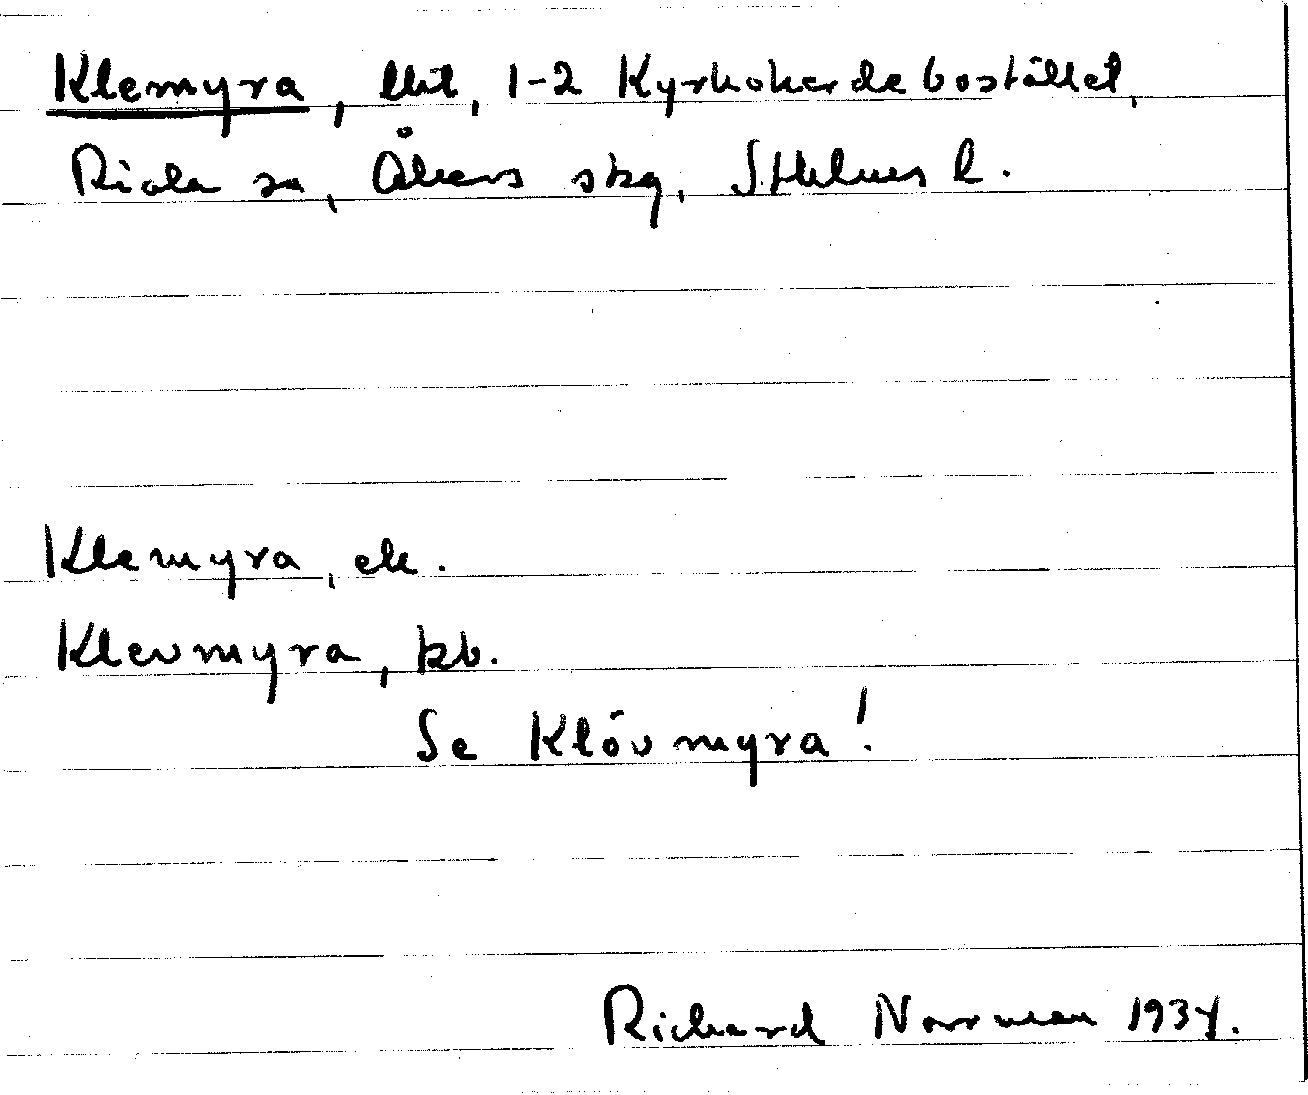 Klemyra, lht, 1-2 Kyrkoherdebostället,
Riala sn, Åkers skg, Sthlms l.
Klemyra, ek.
Klevmyra, kb.
Se Klövmyra!
Richard Norrman 1934.